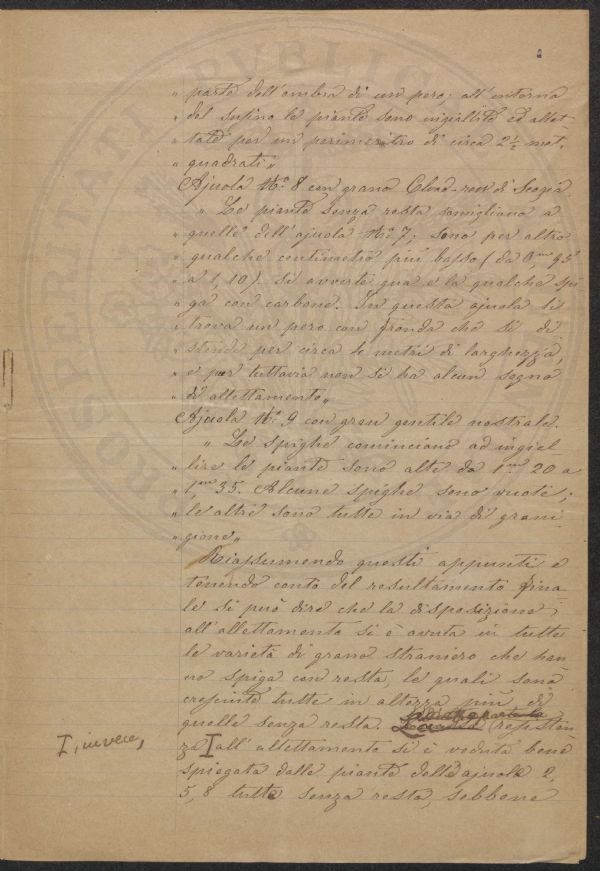 " parte dell'ombra di un pero; all'intorno
" del supino le piante sono ingiallite ed allet-
" tate per un perimetro di circa 2½ met.
" quadrati"
Ajuola No. 8 con grano Cloud-row di Scozia.
" Le piante senza resta somigliano a
" quelle dell'ajuola No. 7; sono per altro
" qualche centimetro più basso (da 0m 95
" a 1, 10). Si avverte qua e là qualche spi
" ga con carbone. In questa ajuola si
" trova un pero con fronda che si di
" stende per circa 6 metri di larghezza,
" e pur tuttavia non si ha alcun segno
" di allettamento"
Ajuola No. 9 con gran gentile nostrale.
" Le spighe cominciano ad ingial
" lire le piante sono alte da 1m 20 a
" 1m 35. Alcune spighe sono vuote;
" le altre sono tutte in via di grani
" gione"
Riassumendo questi appunti e
tenendo conto del resultamento fina
le si può dire che la disposizione
all'allettamento si è avuta in tutte
le varietà di grano straniero che han
no spiga con resta, le quali sono
cresciute tutte in altezza più di
quelle senza resta. La resisten
I, invece,
za I all'allettamento si è veduta bene
spiegata dalle piante delle ajuole 2,
5, 8 tutte senza resta, sebbene